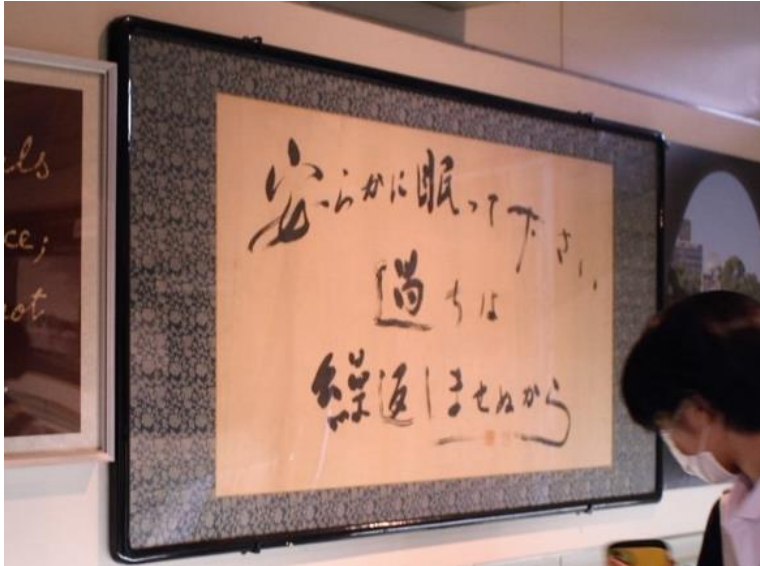 ls
ce;
not
安らかに眠って下さい
過ちは
繰返しませぬから